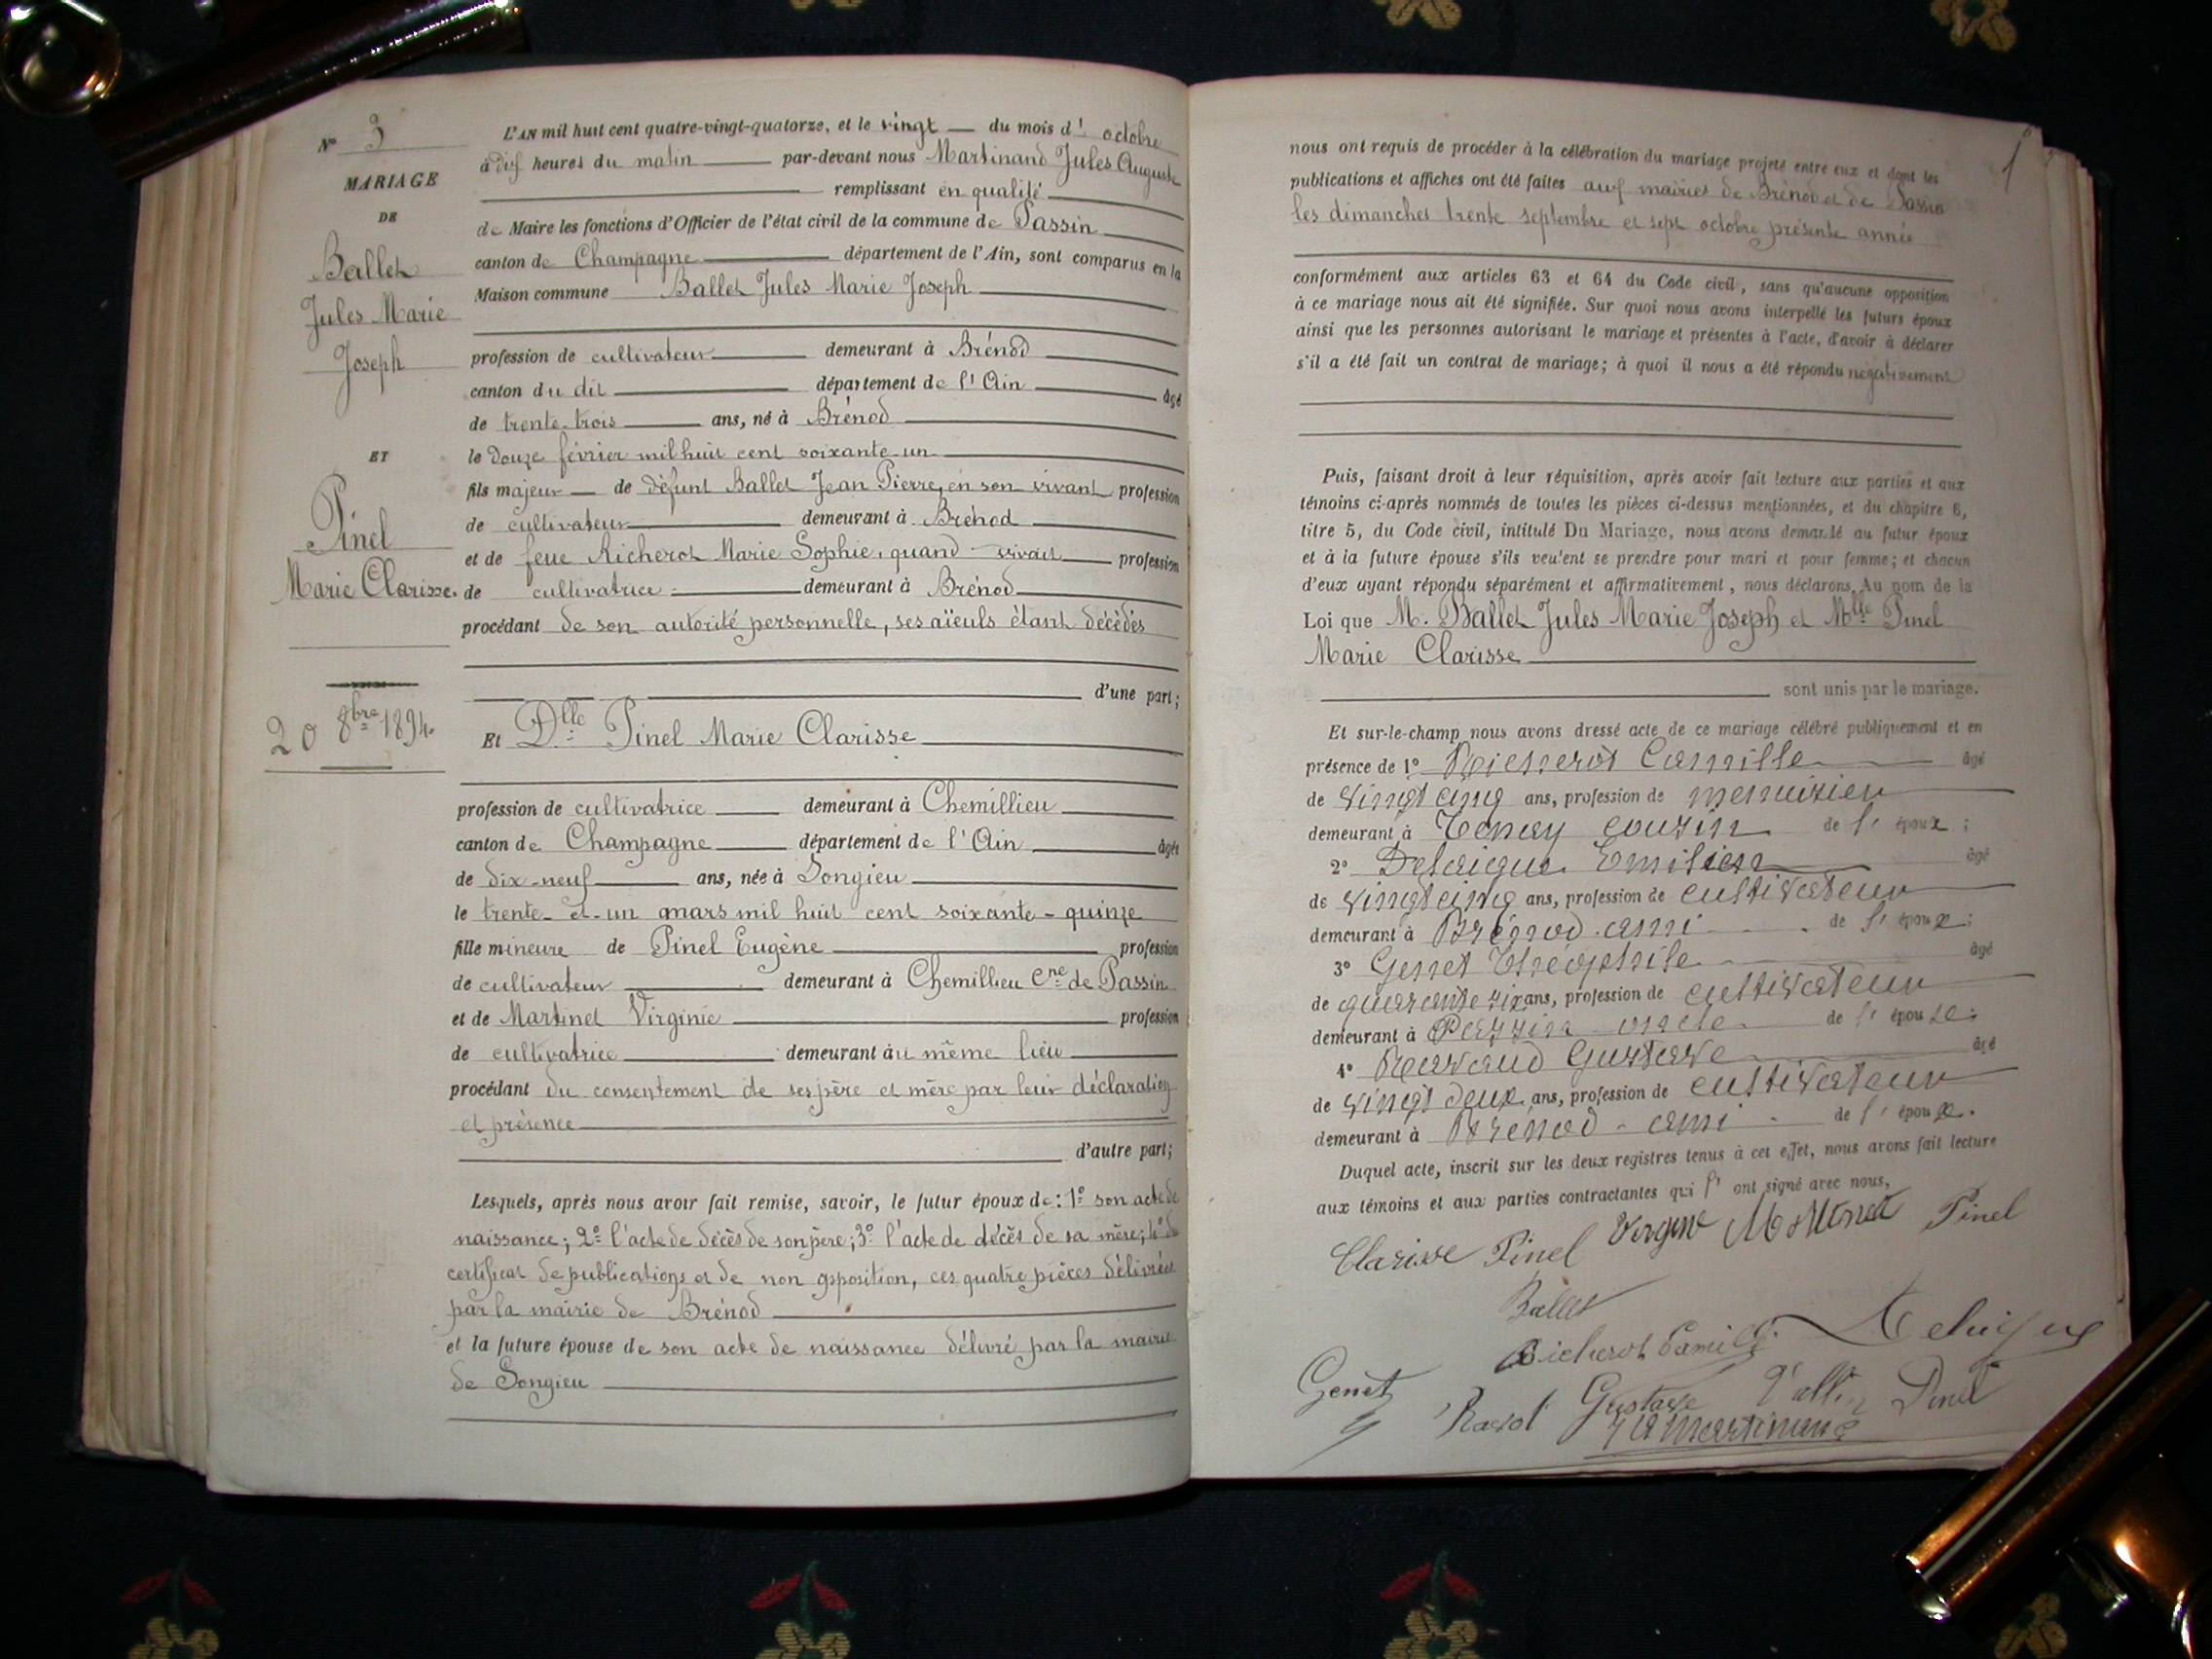 N° 3
MARIAGE
DE
Ballet
Jules Marie
Joseph
ET
Pinel
Marie Clarisse.
20 8bre 1894.
L'AN mil huit cent quatre-vingt-quatorze, et le vingt du mois d' octobre
à dix heures du matin par-devant nous Martinand Jules Auguste
remplissant en qualité
de Maire les fonctions d'Officier de l'état civil de la commune de Passin
canton de Champagne département de l'Ain, sont comparus en la
Maison commune Ballet Jules Marie Joseph
profession de cultivateur demeurant à Brénod
canton du dit département de l'Ain âgé
de trente-trois ans, né à Brénod
le douze février mil huit cent soixante-un
fils majeur de défunt Ballet Jean Pierre, en son vivant profession
de cultivateur demeurant à Brénod
et de feue Richerot Marie Sophie, quand vivait profession
de cultivatrice demeurant à Brénod
procédant de son autorité personnelle, ses aïeuls étant décédés
d'une part;
Et Dlle Pinel Marie Clarisse
profession de cultivatrice demeurant à Chemillieu
canton de Champagne département de l'Ain âgée
de dix-neuf ans, née à Songieu
le trente-et-un mars mil huit cent soixante-quinze
fille mineure de Pinel Eugène profession
de cultivateur demeurant à Chemillieu Cne de Passin
et de Martinet Virginie profession
de cultivatrice demeurant au même lieu
procédant du consentement de ses père et mère par leur déclaration
et présence
d'autre part;
Lesquels, après nous avoir fait remise, savoir, le futur époux de: 1° son acte de
naissance; 2° l'acte de décès de son père; 3° l'acte de décès de sa mère; 4° du
certificat de publications et de non opposition, ces quatre pièces délivrées
par la mairie de Brénod
et la future épouse de son acte de naissance délivré par la mairie
de Songieu
nous ont requis de procéder à la célébration du mariage projeté entre eux et dont les
publications et affiches ont été faites aux mairies de Brénod et de Passin
les dimanches trente septembre et sept octobre présente année
conformément aux articles 63 et 64 du Code civil, sans qu'aucune opposition
à ce mariage nous ait été signifiée. Sur quoi nous avons interpellé les futurs époux
ainsi que les personnes autorisant le mariage et présentes à l'acte, d'avoir à déclarer
s'il a été fait un contrat de mariage; à quoi il nous a été répondu négativement
Puis, faisant droit à leur réquisition, après avoir fait lecture aux parties et aux
témoins ci-après nommés de toutes les pièces ci-dessus mentionnées, et du chapitre 6,
titre 5, du Code civil, intitulé Du Mariage, nous avons demandé au futur époux
et à la future épouse s'ils veulent se prendre pour mari et pour femme; et chacun
d'eux ayant répondu séparément et affirmativement, nous déclarons, Au nom de la
Loi que M. Ballet Jules Marie Joseph et Mlle Pinel
Marie Clarisse
sont unis par le mariage.
Et sur-le-champ nous avons dressé acte de ce mariage célébré publiquement et en
présence de 1° Richerot Camille âgé
de vingt cinq ans, profession de menuisier
demeurant à Tenay cousin de l'époux;
2° Delaigue Emilien âgé
de vingt cinq ans, profession de cultivateur
demeurant à Brénod ami de l'époux;
3° Genet Théophile âgé
de quarante six ans, profession de cultivateur
demeurant à Passin oncle de l'épouse;
4° Ravaud Gustave âgé
de vingt deux ans, profession de cultivateur
demeurant à Brénod ami de l'époux.
Duquel acte, inscrit sur les deux registres tenus à cet effet, nous avons fait lecture
aux témoins et aux parties contractantes qui l' ont signé avec nous,
Clarisse Pinel Virginie Martinet Pinel
Ballet
Richerot Camille Delaigue
Genet Gustave Pinel
J A Martinand